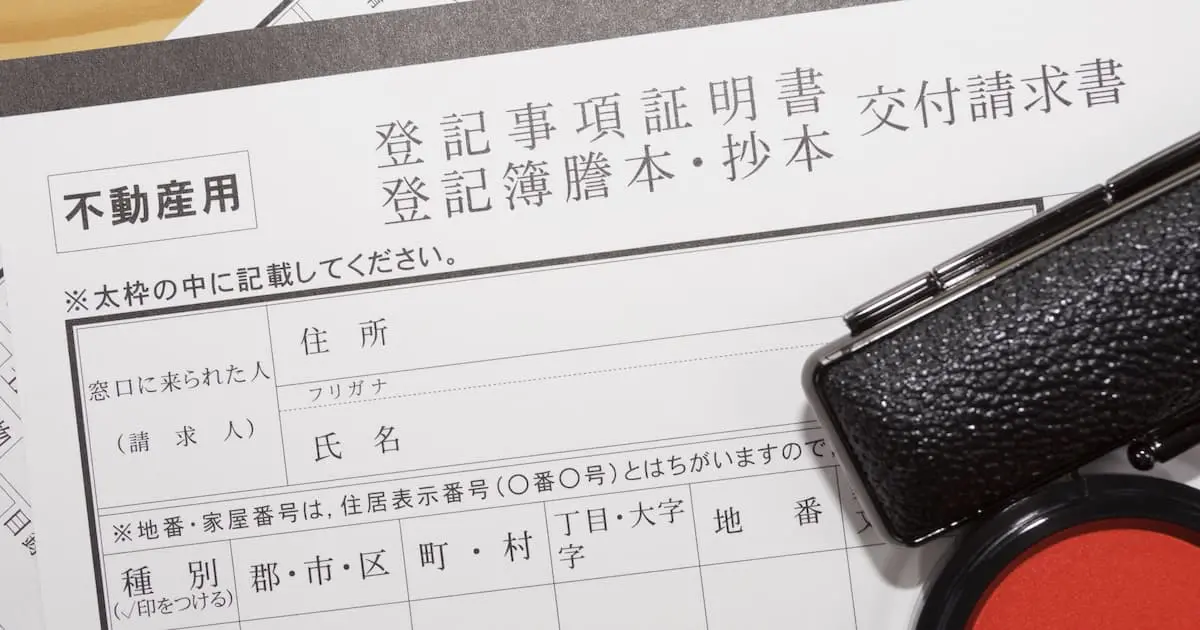 登記事項証明書
登記簿謄本・抄本
交付請求書
不動産用
※太枠の中に記載してください。
窓口に来られた人
（請求人）
住所
フリガナ
氏名
※地番・家屋番号は，住居表示番号（〇番〇号）とはちがいますので，
種別
（✓印をつける）
郡・市・区
町・村
丁目・大字
字
地番